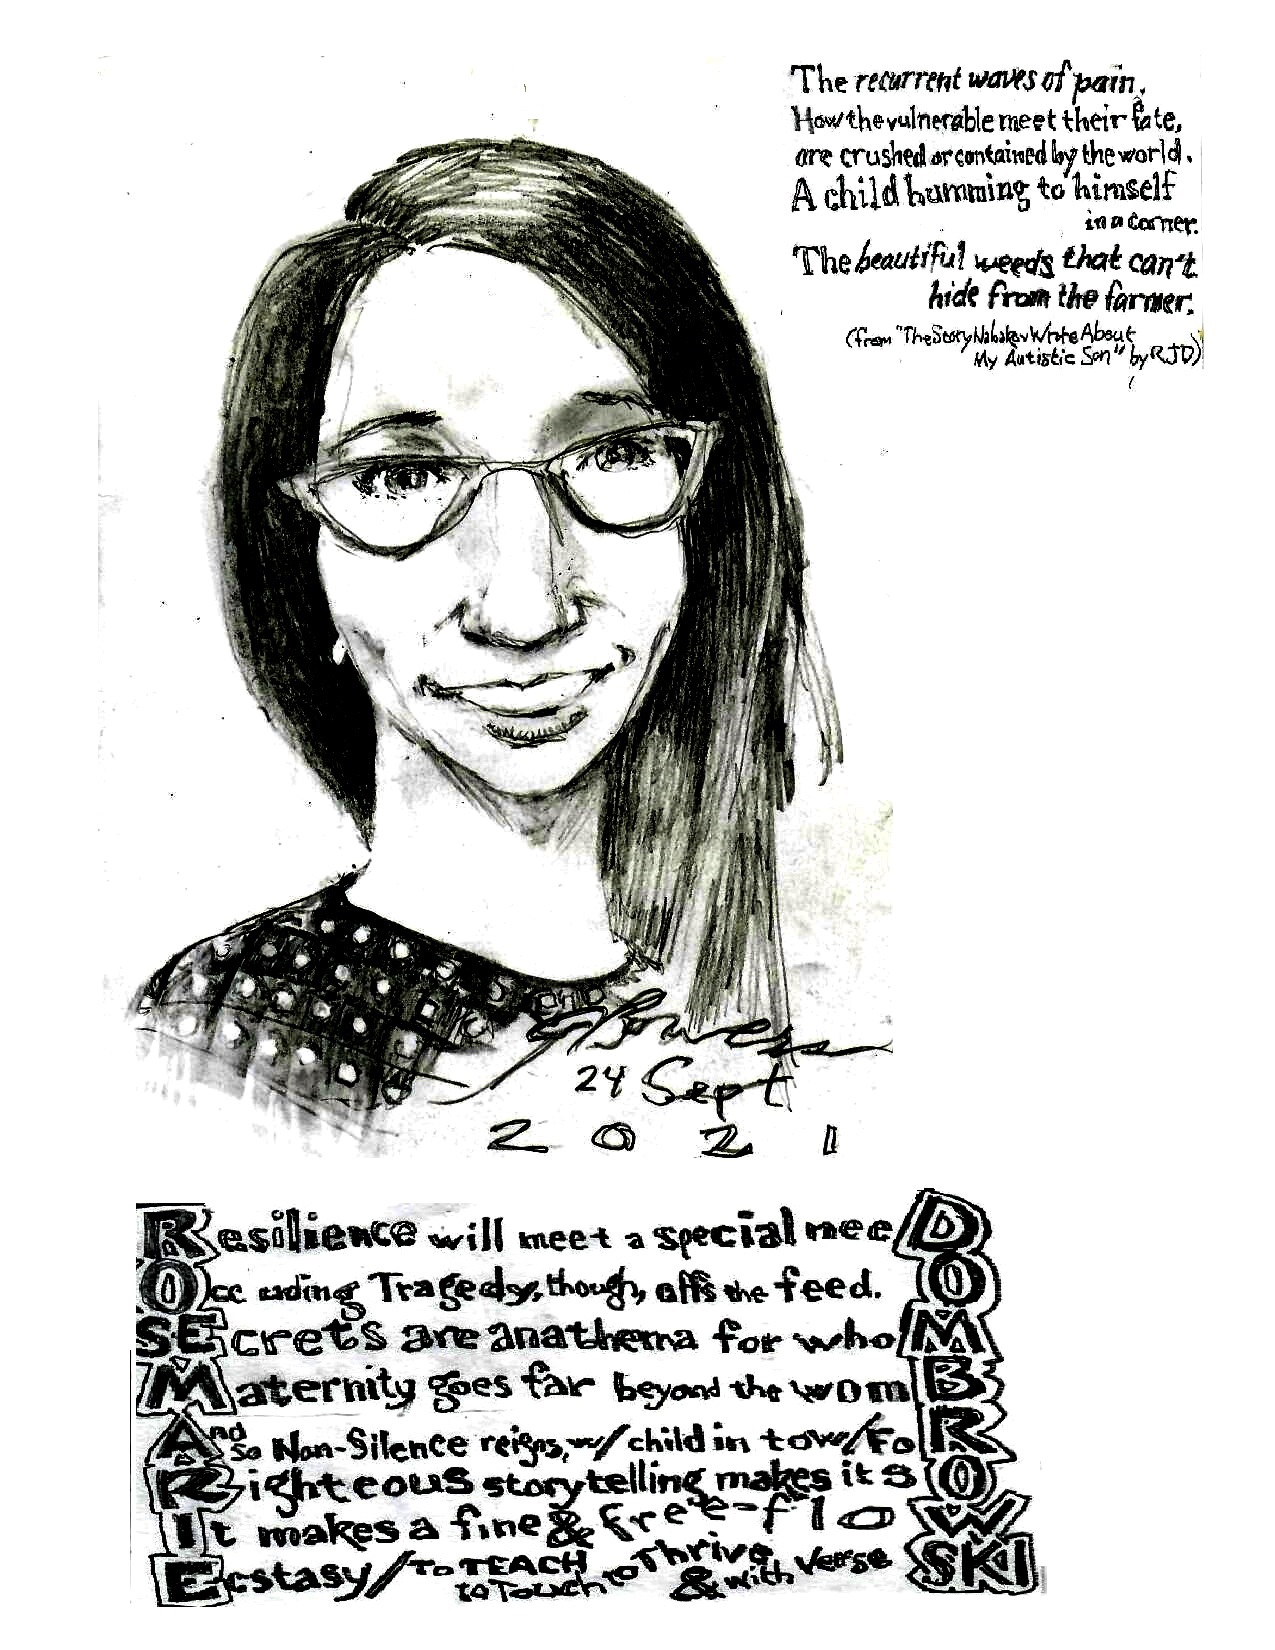 The recurrent waves of pain.
How the vulnerable meet their fate,
are crushed or contained by the world.
A child humming to himself
in a corner.
The beautiful weeds that can't
hide from the farmer.
(from "The Story Nabokov Wrote About
My Autistic Son" by RJD)
Bowers
24 Sept
2021
Resilience will meet a special neeD
Tragedy, though, offs the feed. O
SEcrets are anathema for who M
Maternity goes far beyond the womB
And so Non-Silence reigns, w/ child in tow/FoR
Righteous storytelling makes it sO
It makes a fine & free-floW
Ecstasy/to TEACH to Touch to Thrive & with Verse SKI